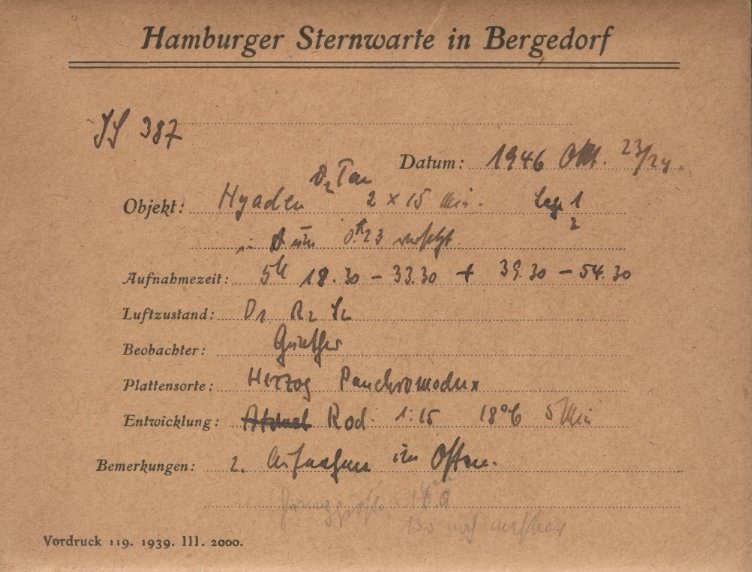 Hamburger Sternwarte in Bergedorf
387
Datum: 1946 Okt. 23/24.
Tau
Objekt: Hyaden 2 x 15 Min. 1
2
um 23 versetzt.
Aufnahmezeit: 5h 18.30 - 33.30 + 39.30 - 54.30
Luftzustand: D1 R2 S2
Beobachter: Günther
Plattensorte: Herzog Panchromodux
Entwicklung: Rod. 1:15 18°C 5 Min
Bemerkungen: 2. Aufnahme im Osten.
Grenzgröße
noch
Vordruck 119. 1939. III. 2000.